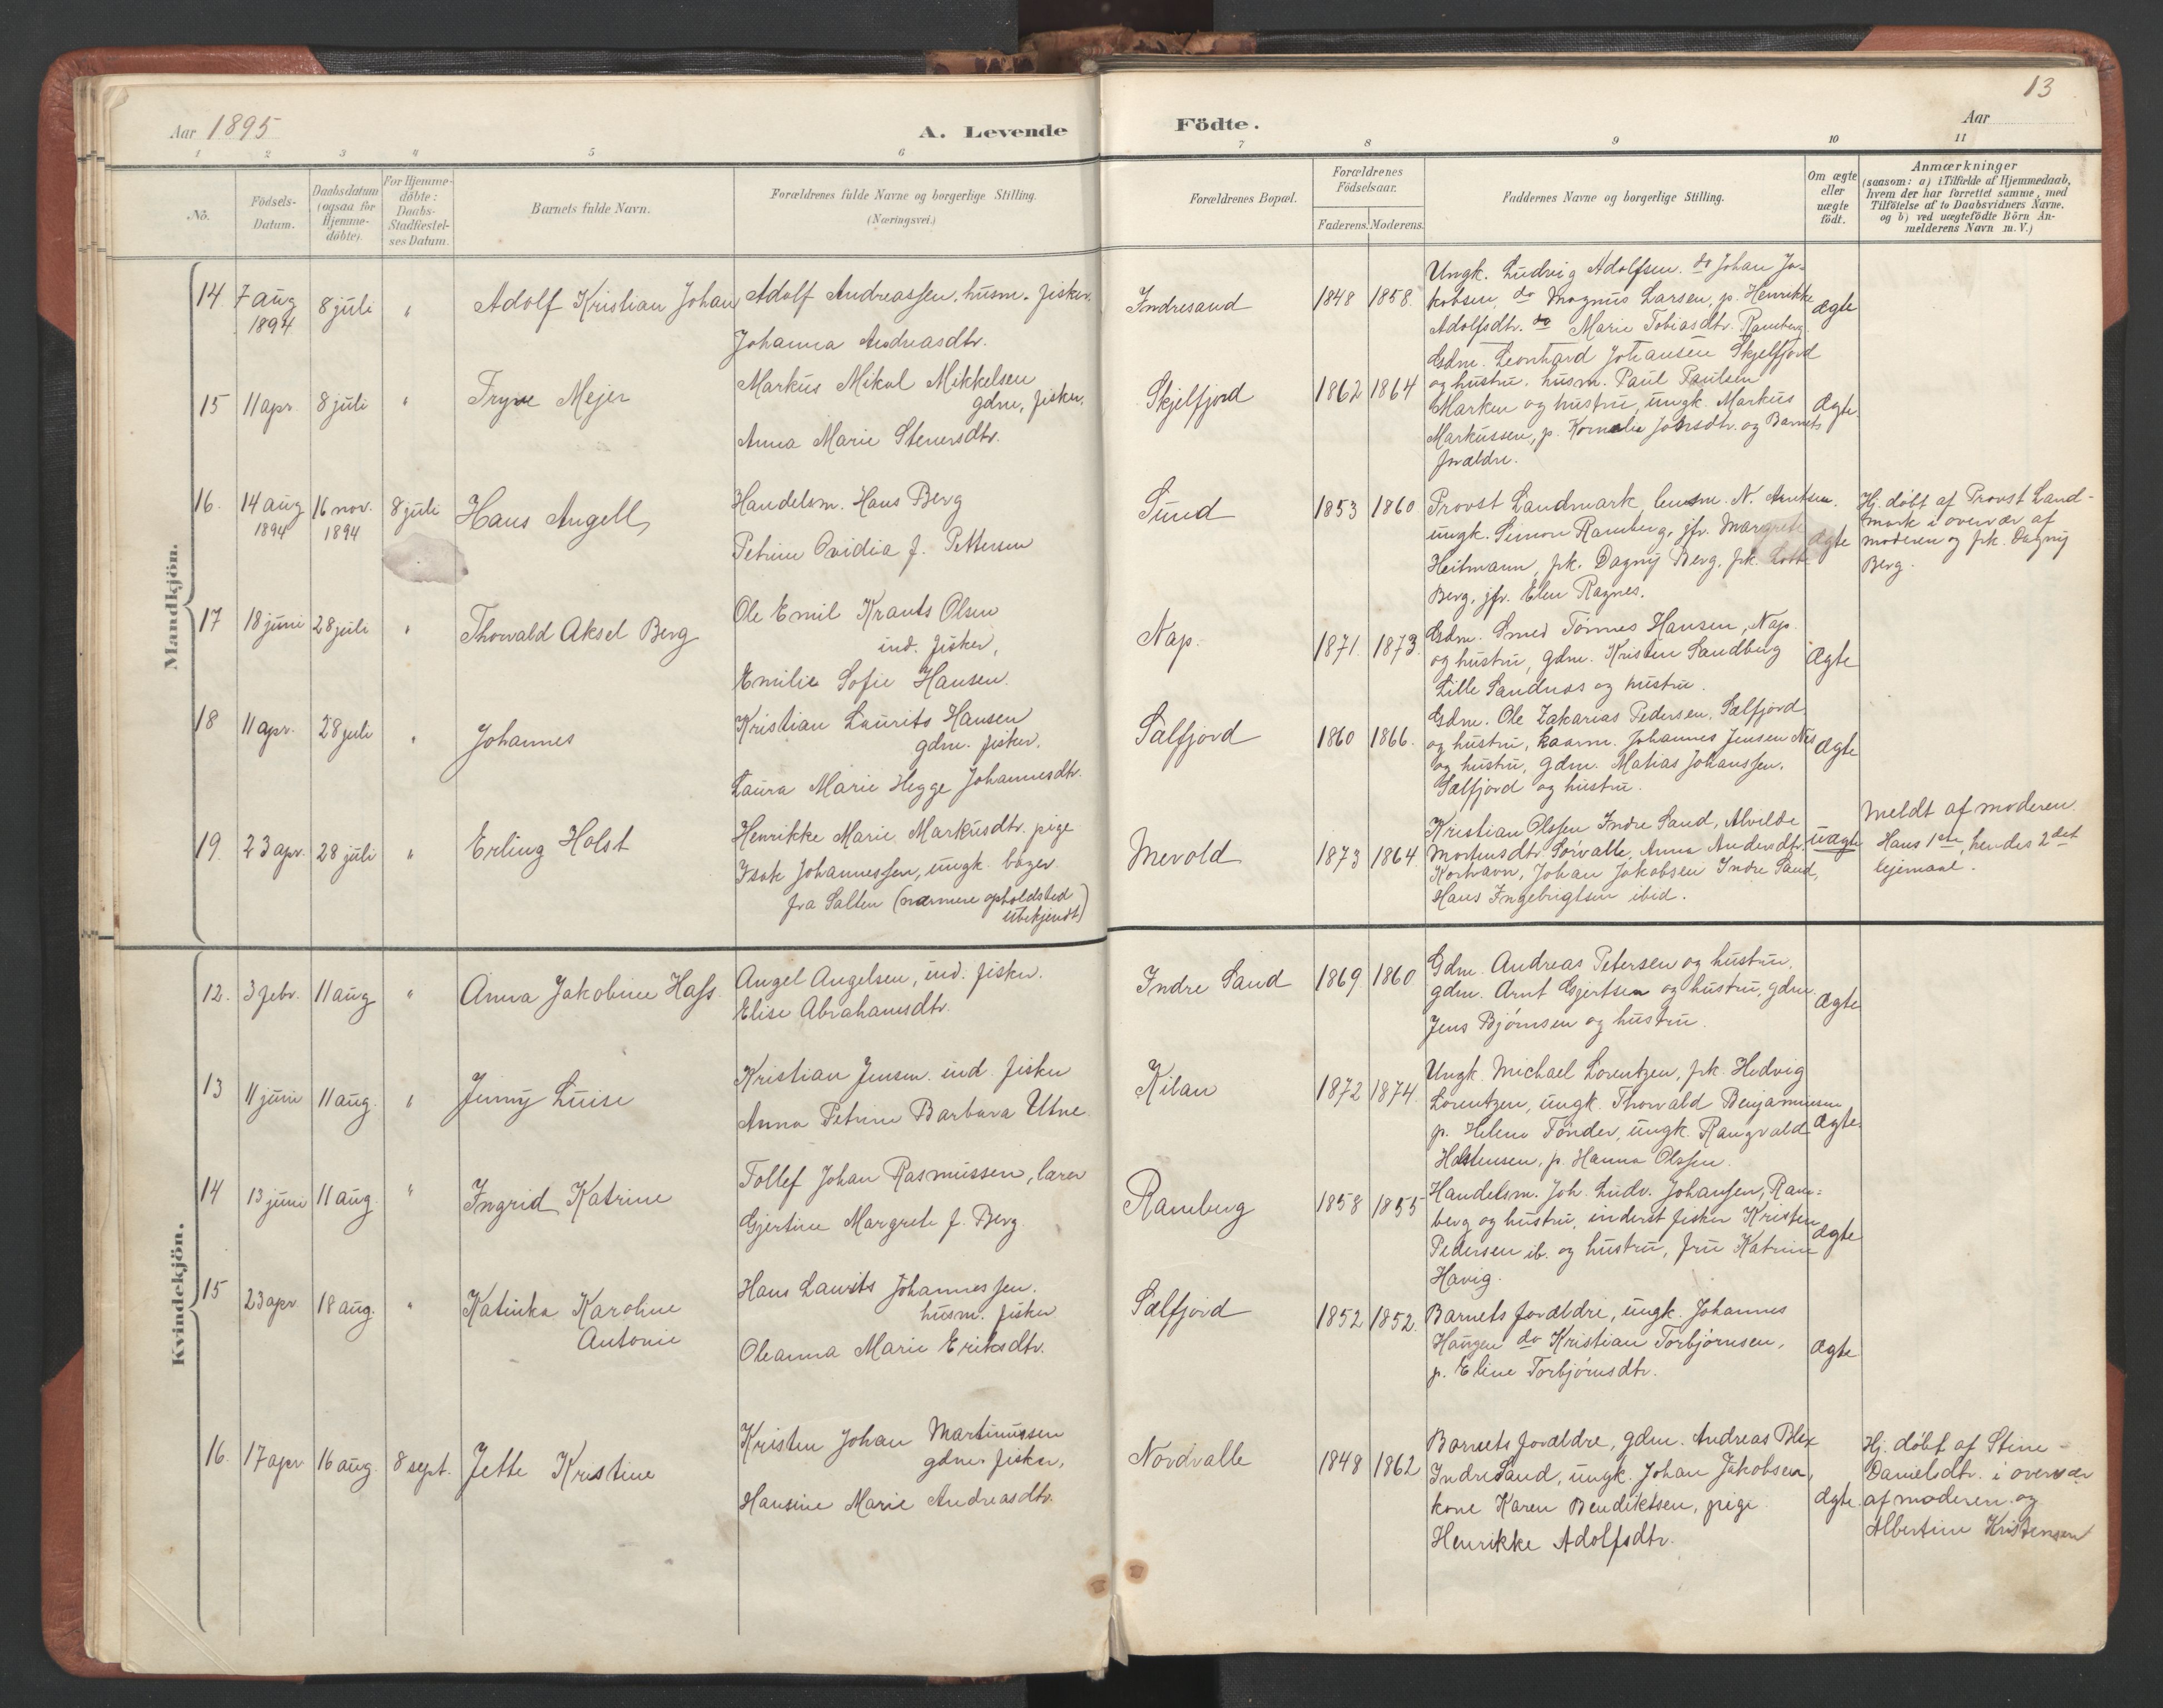 13
Aar 1895
A. Levende
Födte.
Aar
1 2 3 4 5 6 7 8 9 10 11
Nö.
Födsels-
Datum.
Daabsdatum
(ogsaa for
Hjemme-
døbte).
For Hjemme-
döbte:
Daabs-
Stadfæstel-
ses Datum.
Barnets fulde Navn.
Forældrenes fulde Navne og borgerlige Stilling.
(Næringsvei.)
Forældrenes Bopæl.
Forældrenes
Födselsaar.
Faderens. Moderens.
Faddernes Navne og borgerlige Stilling.
Om ægte
eller
uægte
födt.
Anmærkninger
(saasom: a) i Tilfælde af Hjemmedaab,
hvem der har forrettet samme, med
Tilföielse af to Daabsvidners Navne.
og b) ved uægtefödte Börn An-
melderens Navn m. V.)
Mandkjön.
14 7 aug
1894
8 juli
"
Adolf Kristian Johan
Adolf Andreassen, husm. fisker.
Johanna Andreasdtr.
Indresand
1848 1858.
Ungk. Ludvig Adolfsen. do Johan Ja-
kobsen, do Magnus Larsen, p. Henrikke
Adolfsdtr. do Marie Tobiasdtr. Ramberg.
ægte
15 11 apr. 8 juli "
Trygve Mejer
Markus Mikal Mikkelsen
gdm, fisker.
Anna Marie Stenersdtr.
Skjelfjord
1862 1864
Gdm. Leonhard Johansen Skjelfjord
og hustru, husm. Paul Paulsen
Marken og hustru, ungk. Markus
Markussen, p. Kornelie Johsdtr. og Barnets
forældre.
Ægte.
16. 14 aug
1894
16 nov.
1894
8 juli
Hans Angell
Handelsm. Hans Berg
Petrine Ovidia f. Pettersen
Sund
1853 1860
Provst Landmark lensm. N. Arntsen.
ungk. Simon Ramberg, jfr. Margrete
Heitmann, frk. Dagny Berg, frk. Lotte
Berg, jfr. Elen Ragnes.
ægte
Hj. døbt af Provst Land-
mark i overvær af
moderen og frk. Dagny
Berg.
17 18 juni 28 juli "
Thorvald Aksel Berg
Ole Emil Krants Olsen
ind. fisker,
Emilie Sofie Hansen.
Nap.
1871. 1873.
Gdm. Smed Tønnes Hansen, Nap.
og hustru, gdm. Kristen Sandberg
Lille Sandnæs og hustru.
Ægte
18 11 apr. 28 juli "
Johannes
Kristian Laurits Hansen
gdm. fisker.
Laura Marie Hegge Johannesdtr.
Sælfjord
1860 1866.
Gdm. Ole Zakarias Pedersen, Sælfjord.
og hustru, kaarm. Johannes Jensen Nes
og hustru, gdm. Matias Johanssen,
Sælfjord og hustru.
Ægte
19. 23 apr. 28 juli "
Erling Holst
Henrikke Marie Markusdtr. pige
Isak Johannessen, ungk. bager
fra Salten (nærmere opholdsted
ubekjendt)
Mevold
1873 1864.
Kristian Olssen Indre Sand, Alvilde
Mortensdtr. Sørvalle, Anna Andersdtr.
Korhavn, Johan Jakobsen Indre Sand,
Hans Ingebrigtsen ibid.
uægte
Meldt af moderen
Hans 1ste, hendes 2det
lejemaal.
Kvindekjön.
12. 3 febr. 11 aug "
Anna Jakobine Hass.
Angel Angelsen, ind. fisker.
Elise Abrahamsdtr.
Indre Sand
1869 1860
Gdm. Andreas Petersen og hustru,
gdm. Arnt Gjertsen og hustru, gdm.
Jens Bjørnsen og hustru.
Ægte
13 11 juni 11 aug. "
Jenny Luise
Kristian Jensen ind. fisker
Anna Petrine Barbara Utne.
Kilan
1872 1874.
Ungk. Michael Lorentzen, frk. Hedvig
Lorentzen, ungk. Thorvald Benjaminsen
p. Helene Tønder, ungk. Rangvald
Halstensen, p. Hanna Olssen.
Ægte
14 13 juni 11 aug. "
Ingrid Katrine
Tollef Johan Rasmussen, lærer
Gjertine Margrete f. Berg.
Ramberg
1858 1855
Handelsm. Joh. Ludv. Johansen, Ram-
berg og hustru, inderst fisker Kristen
Pedersen ib. og hustru, fru Katrine
Havig.
Ægte
15 23 apr. 18 aug. "
Katinka Karoline
Antonie
Hans Laurits Johannessen.
husm. fisker
Oleanna Marie Eriksdtr.
Sælfjord
1852 1852.
Barnets forældre, ungk. Johannes
Haugen do Kristian Torbjørnsen,
p. Eline Torbjørnsdtr.
ægte
16. 17 apr 16 aug. 8 sept.
Jette Kristine
Kristen Johan Martinussen
gdm. fisker,
Hansine Marie Andreasdtr.
Nordvalle
1848 1862
Barnets forældre, gdm. Andreas Blex
Indre Sand, ungk. Johan Jakobsen,
kone Karen Bendiktsen, pige
Henrikke Adolfsdtr.
ægte.
Hj. døbt af Stine
Danielsdtr. i overvær
af moderen og
Albertine Kristensen